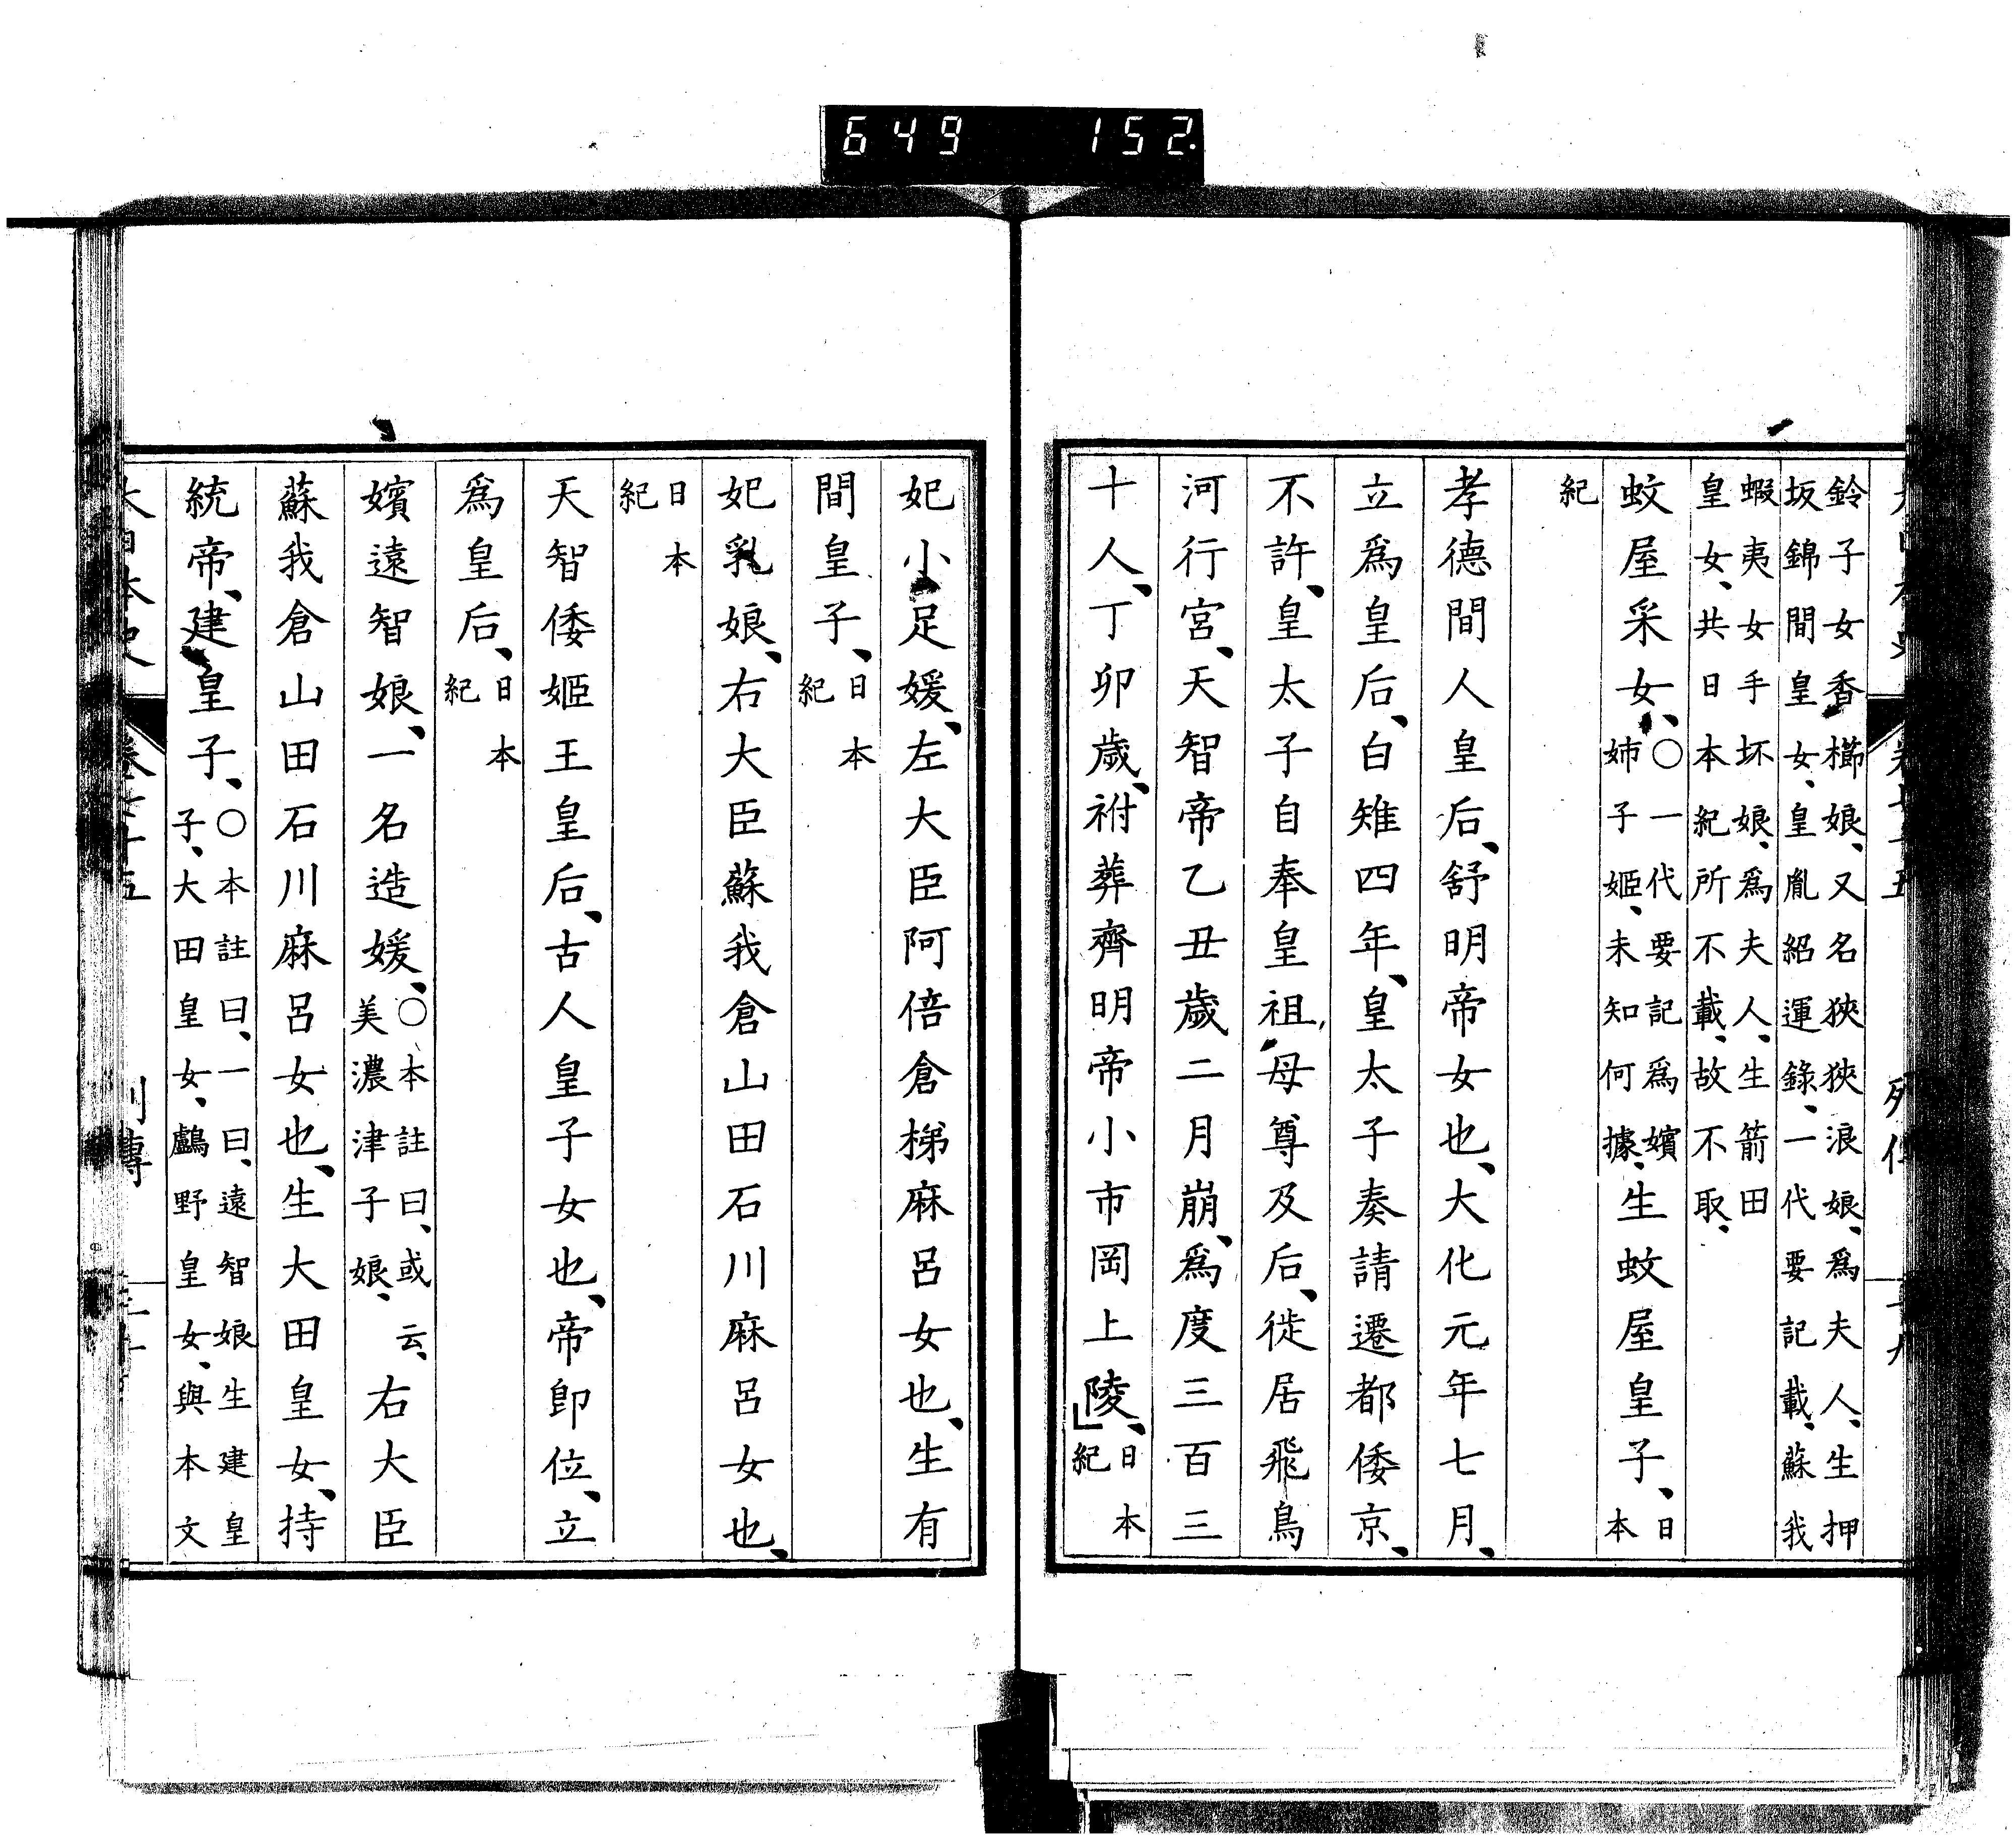 649 152.
鈴子女香櫛娘、又名狹狹浪娘、爲夫人、生押
坂錦間皇女、皇胤紹運錄、一代要記載、蘇我
蝦夷女手坏娘、爲夫人、生箭田
皇女、共日本紀所不載、故不取、
蚊屋采女、
〇一代要記爲嬪
姉子姬、未知何據、
生蚊屋皇子、
日
本
紀
孝德間人皇后、舒明帝女也、大化元年七月、
立爲皇后、白雉四年、皇太子奏請遷都倭京、
不許、皇太子自奉皇祖母尊及后、徙居飛鳥
河行宮、天智帝乙丑歲二月崩、爲度三百三
十人、丁卯歲、祔葬齊明帝小市岡上陵、
日本
紀
妃小足媛、左大臣阿倍倉梯麻呂女也、生有
間皇子、
日本
紀
妃乳娘、右大臣蘇我倉山田石川麻呂女也、
日本
紀
天智倭姬王皇后、古人皇子女也、帝卽位、立
爲皇后、
日本
紀
嬪遠智娘、一名造媛、
〇本註曰、或云、
美濃津子娘、
右大臣
蘇我倉山田石川麻呂女也、生大田皇女、持
統帝、建皇子、
〇本註曰、一曰、遠智娘生建皇
子、大田皇女、鸕野皇女、與本文